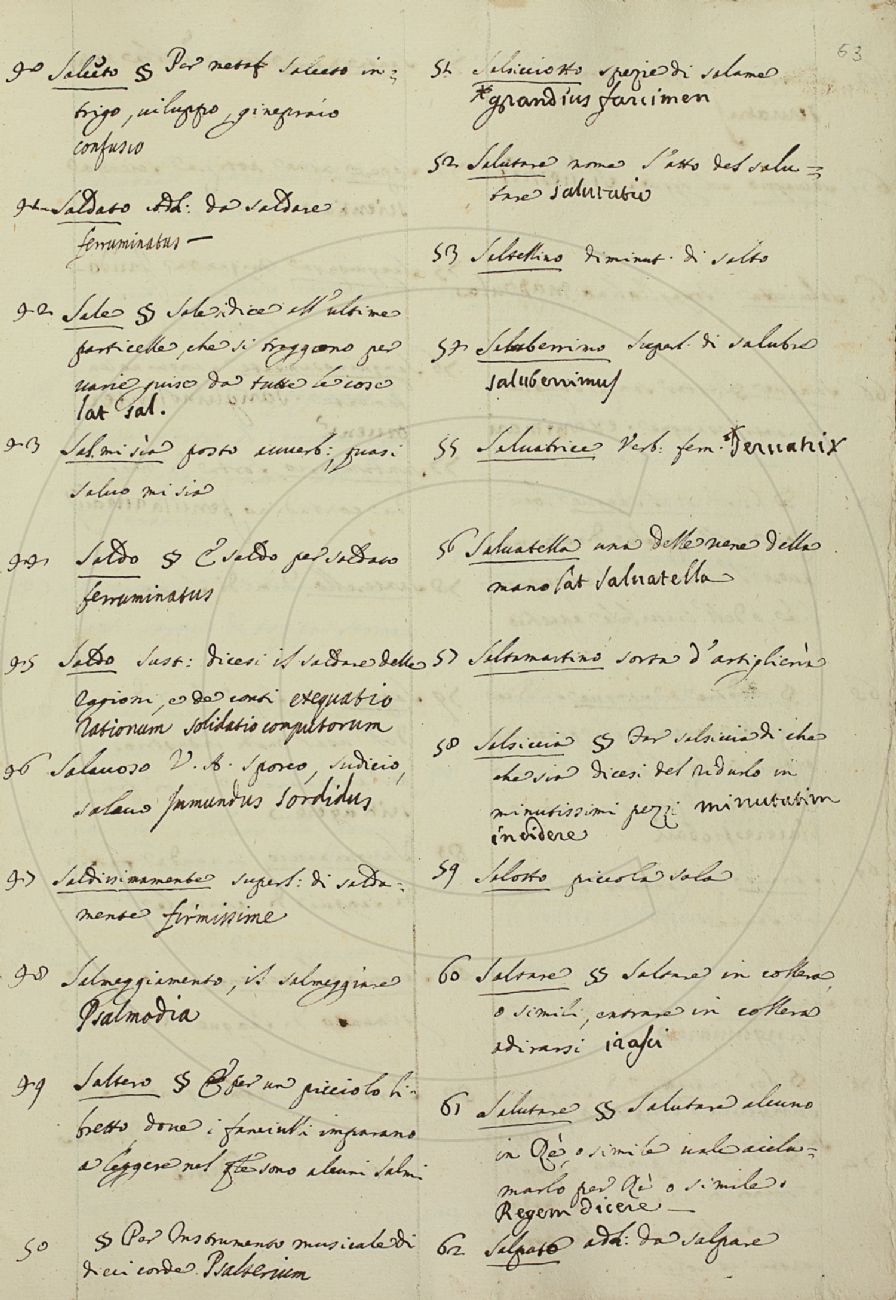 63
40 Salceto § Per metaf Salceto in=
trigo, viluppo, ginepraio
confusio
41 Saldato Add: da saldare
ferruminatus —
42 Sale § Sale, dice all'ultime
particelle, che si traggono per
varie guise da tutte le cose
lat sal.
43 Salmisia posto avverb:, quasi
salvo mi sia
44 Saldo § E saldo per saldato
ferruminatus
45 Saldo sust: dicesi il saldare delle
ragioni, e de conti exequatio
rationum solidatio computorum
46 Salavoso V. A. sporco, sudicio,
salavo Inmundus sordidus
47 Saldissimamente superl: di salda=
mente firmissime
48 Salmeggiamento, il salmeggiare
Psalmodia
49 Saltero § E per un picciolo li=
bretto, dove i fanciulli imparano
a leggere nel sono alcuni Salmi
50 § Per Instrumento musicale di
dieci corde Psalterium
51 Salsicciotto spezie di salame
*grandius farcimen
52 Salutare nome l'atto del salu=
tare salutatio
53 Saltellino diminut. di salto
54 Saluberrimo superl. di salubre
saluberrimus
55 Salvatrice Verb. fem. *Servatrix
56 Salvatella una delle vene della
mano lat Salvatella
57 Saltamartino sorta d'artiglieria
58 Salsiccia § Far salsiccia di che
che sia dicesi del ridurlo in
minutissimi pezzi minutatim
incidere
59 Salotto piccola sala
60 Saltare § Saltare in collera,
o simili, entrare in collera
adirarsi irasci
61 Salutare § Salutare alcuno
in Rè, o simile vale accla=
marlo per Rè o simile.
Regem dicere —
62 Salpato add: da salpare